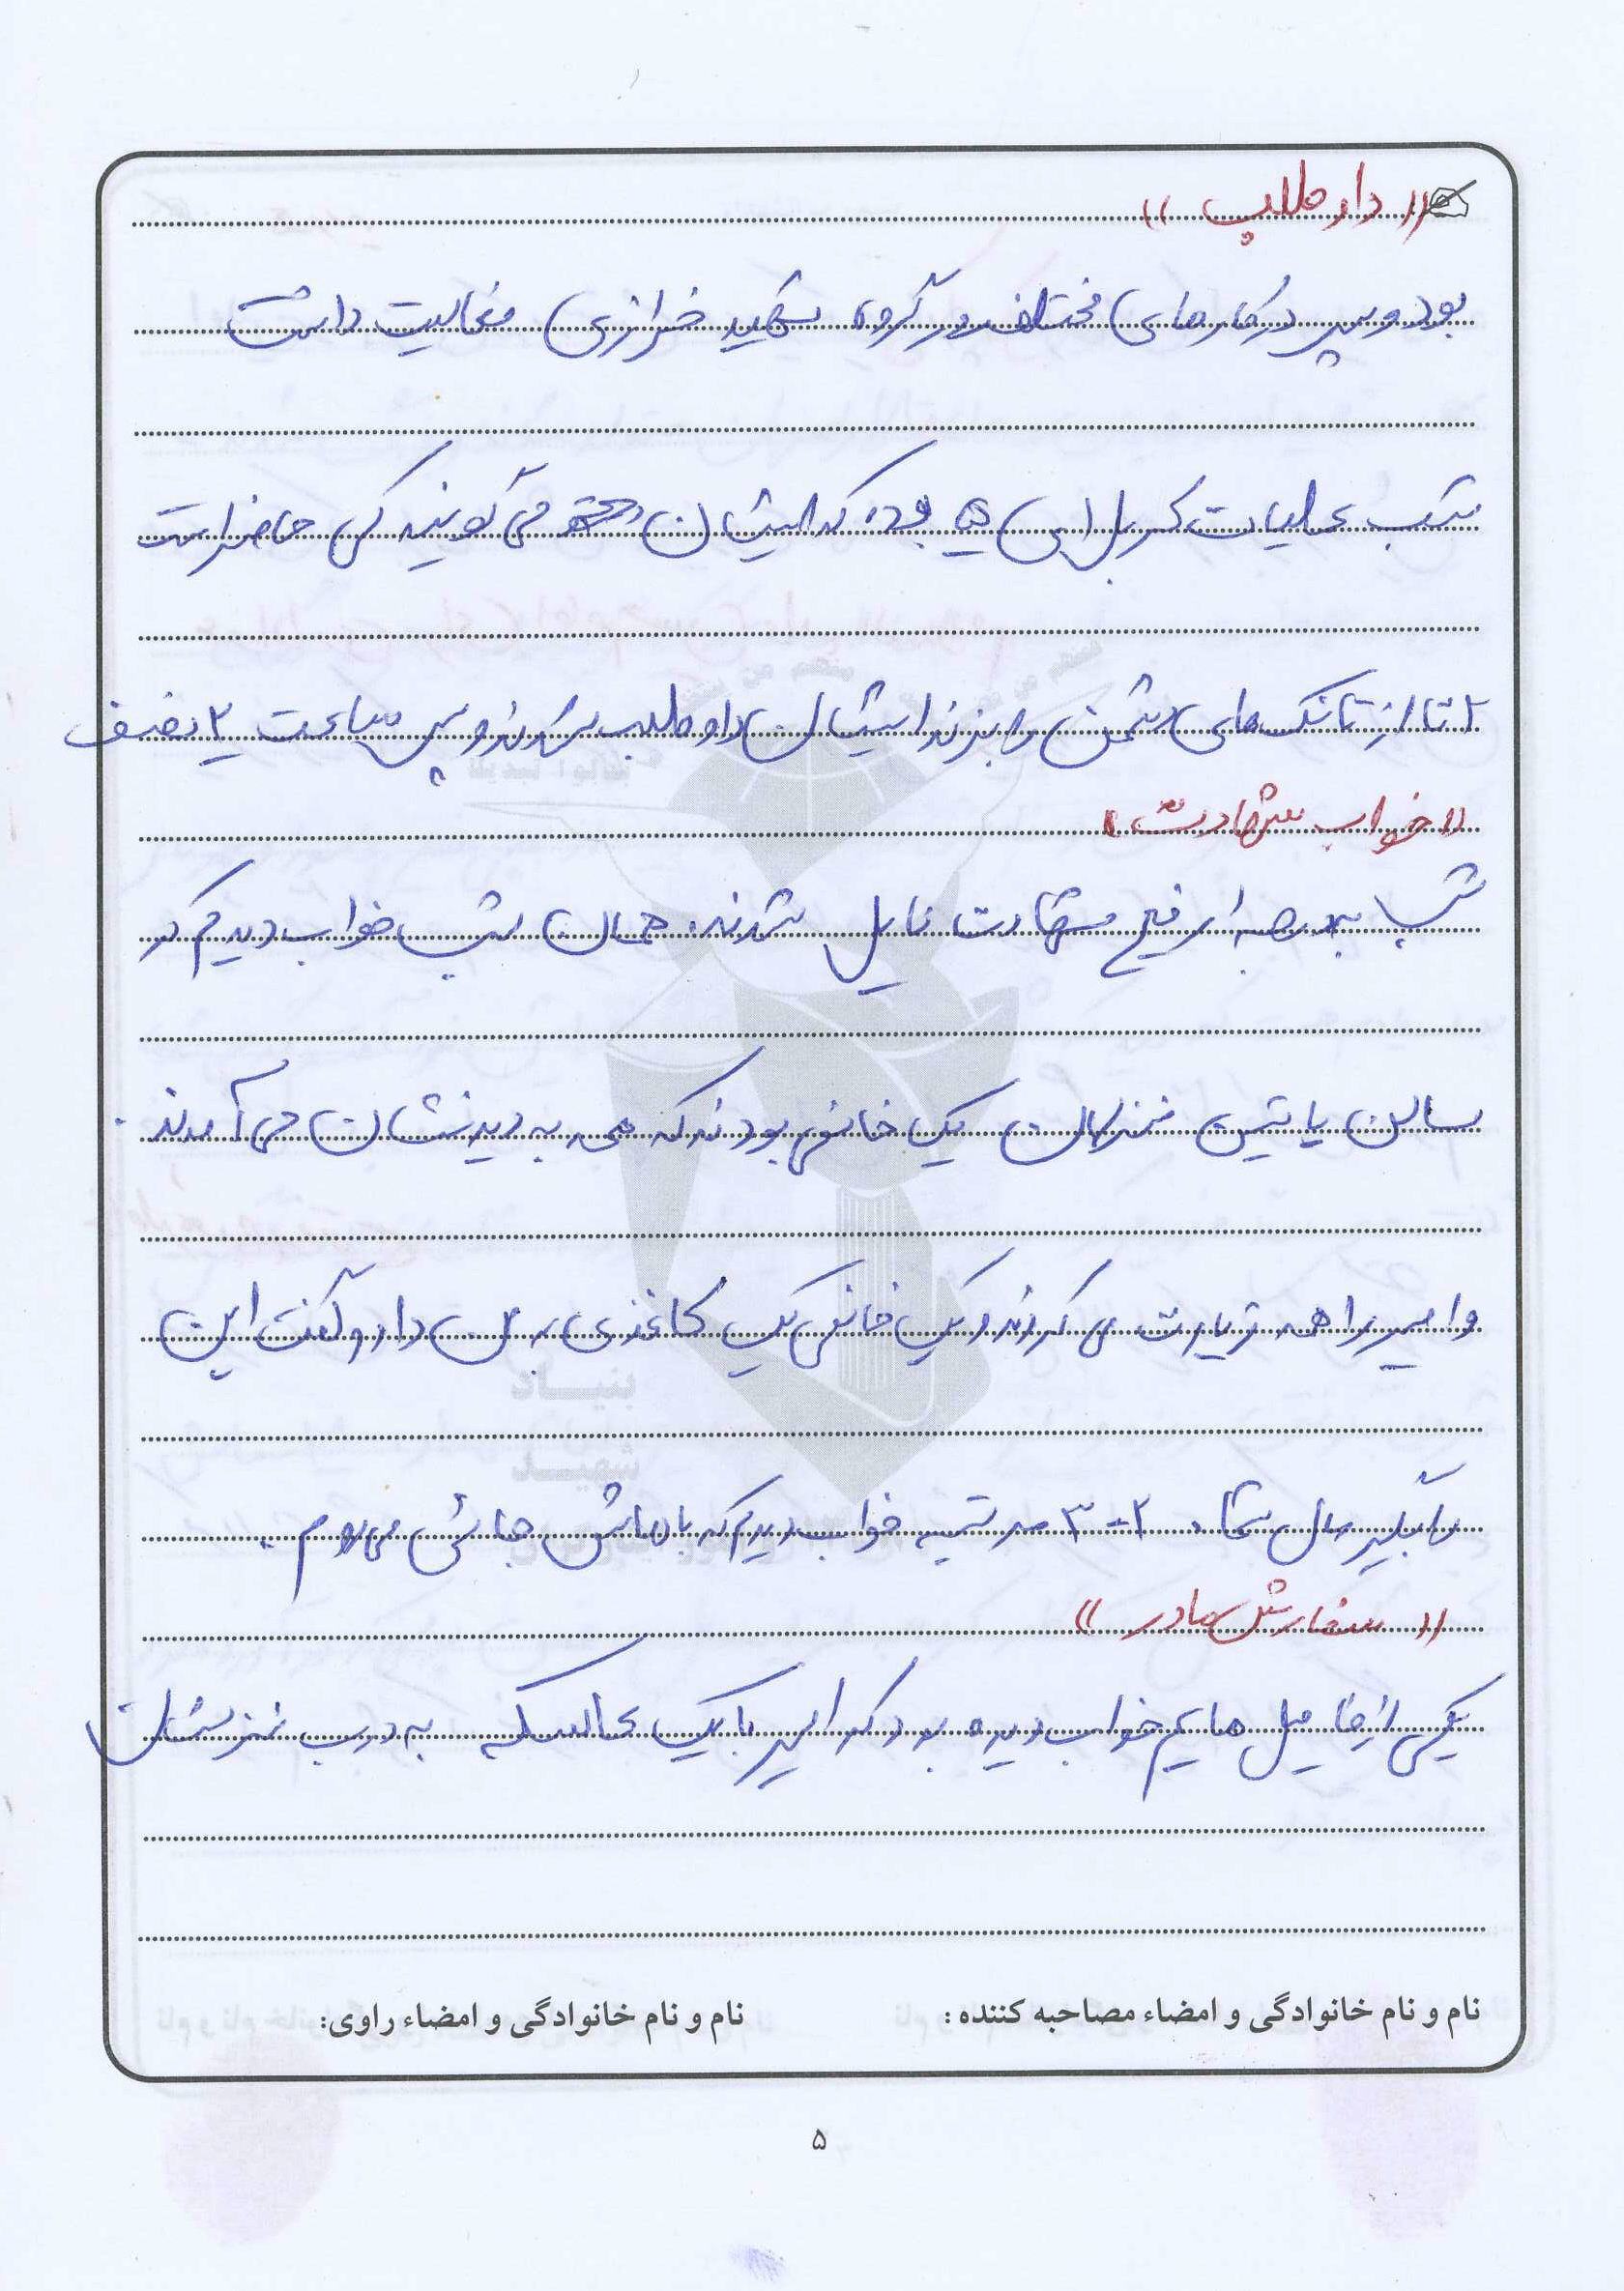 « داوطلب »
بود و سپس در کارهای مختلف در گروه شهید خرازی فعالیت داشت
شب عملیات کربلای ۵ بوده که ایشان می گویند کی حاضر است
۲ تا از تانک های دشمن را بزند ایشان داوطلب شدند و سپس ساعت ۲ نصف
« خواب شهادت »
شب به درجه رفیع شهادت نایل شدند. همان شب خواب دیدم که در
سالن پایین منزلمان یک خانمی بودند که همه به دیدنشان می آمدند.
و امیر را همه زیارت می کردند و یک خانمی یک کاغذی به من داد و گفت این
را بگیر مال شما. ۲-۳ مرتبه خواب دیدم که با ماشین جائی می روم.
« سفارش مادر »
یکی از فامیل هایم خواب دیده بود که امیر با یک کالسکه به درب منزلشان
بنیاد
شهید
نام و نام خانوادگی و امضاء مصاحبه کننده:
نام و نام خانوادگی و امضاء راوی:
۵